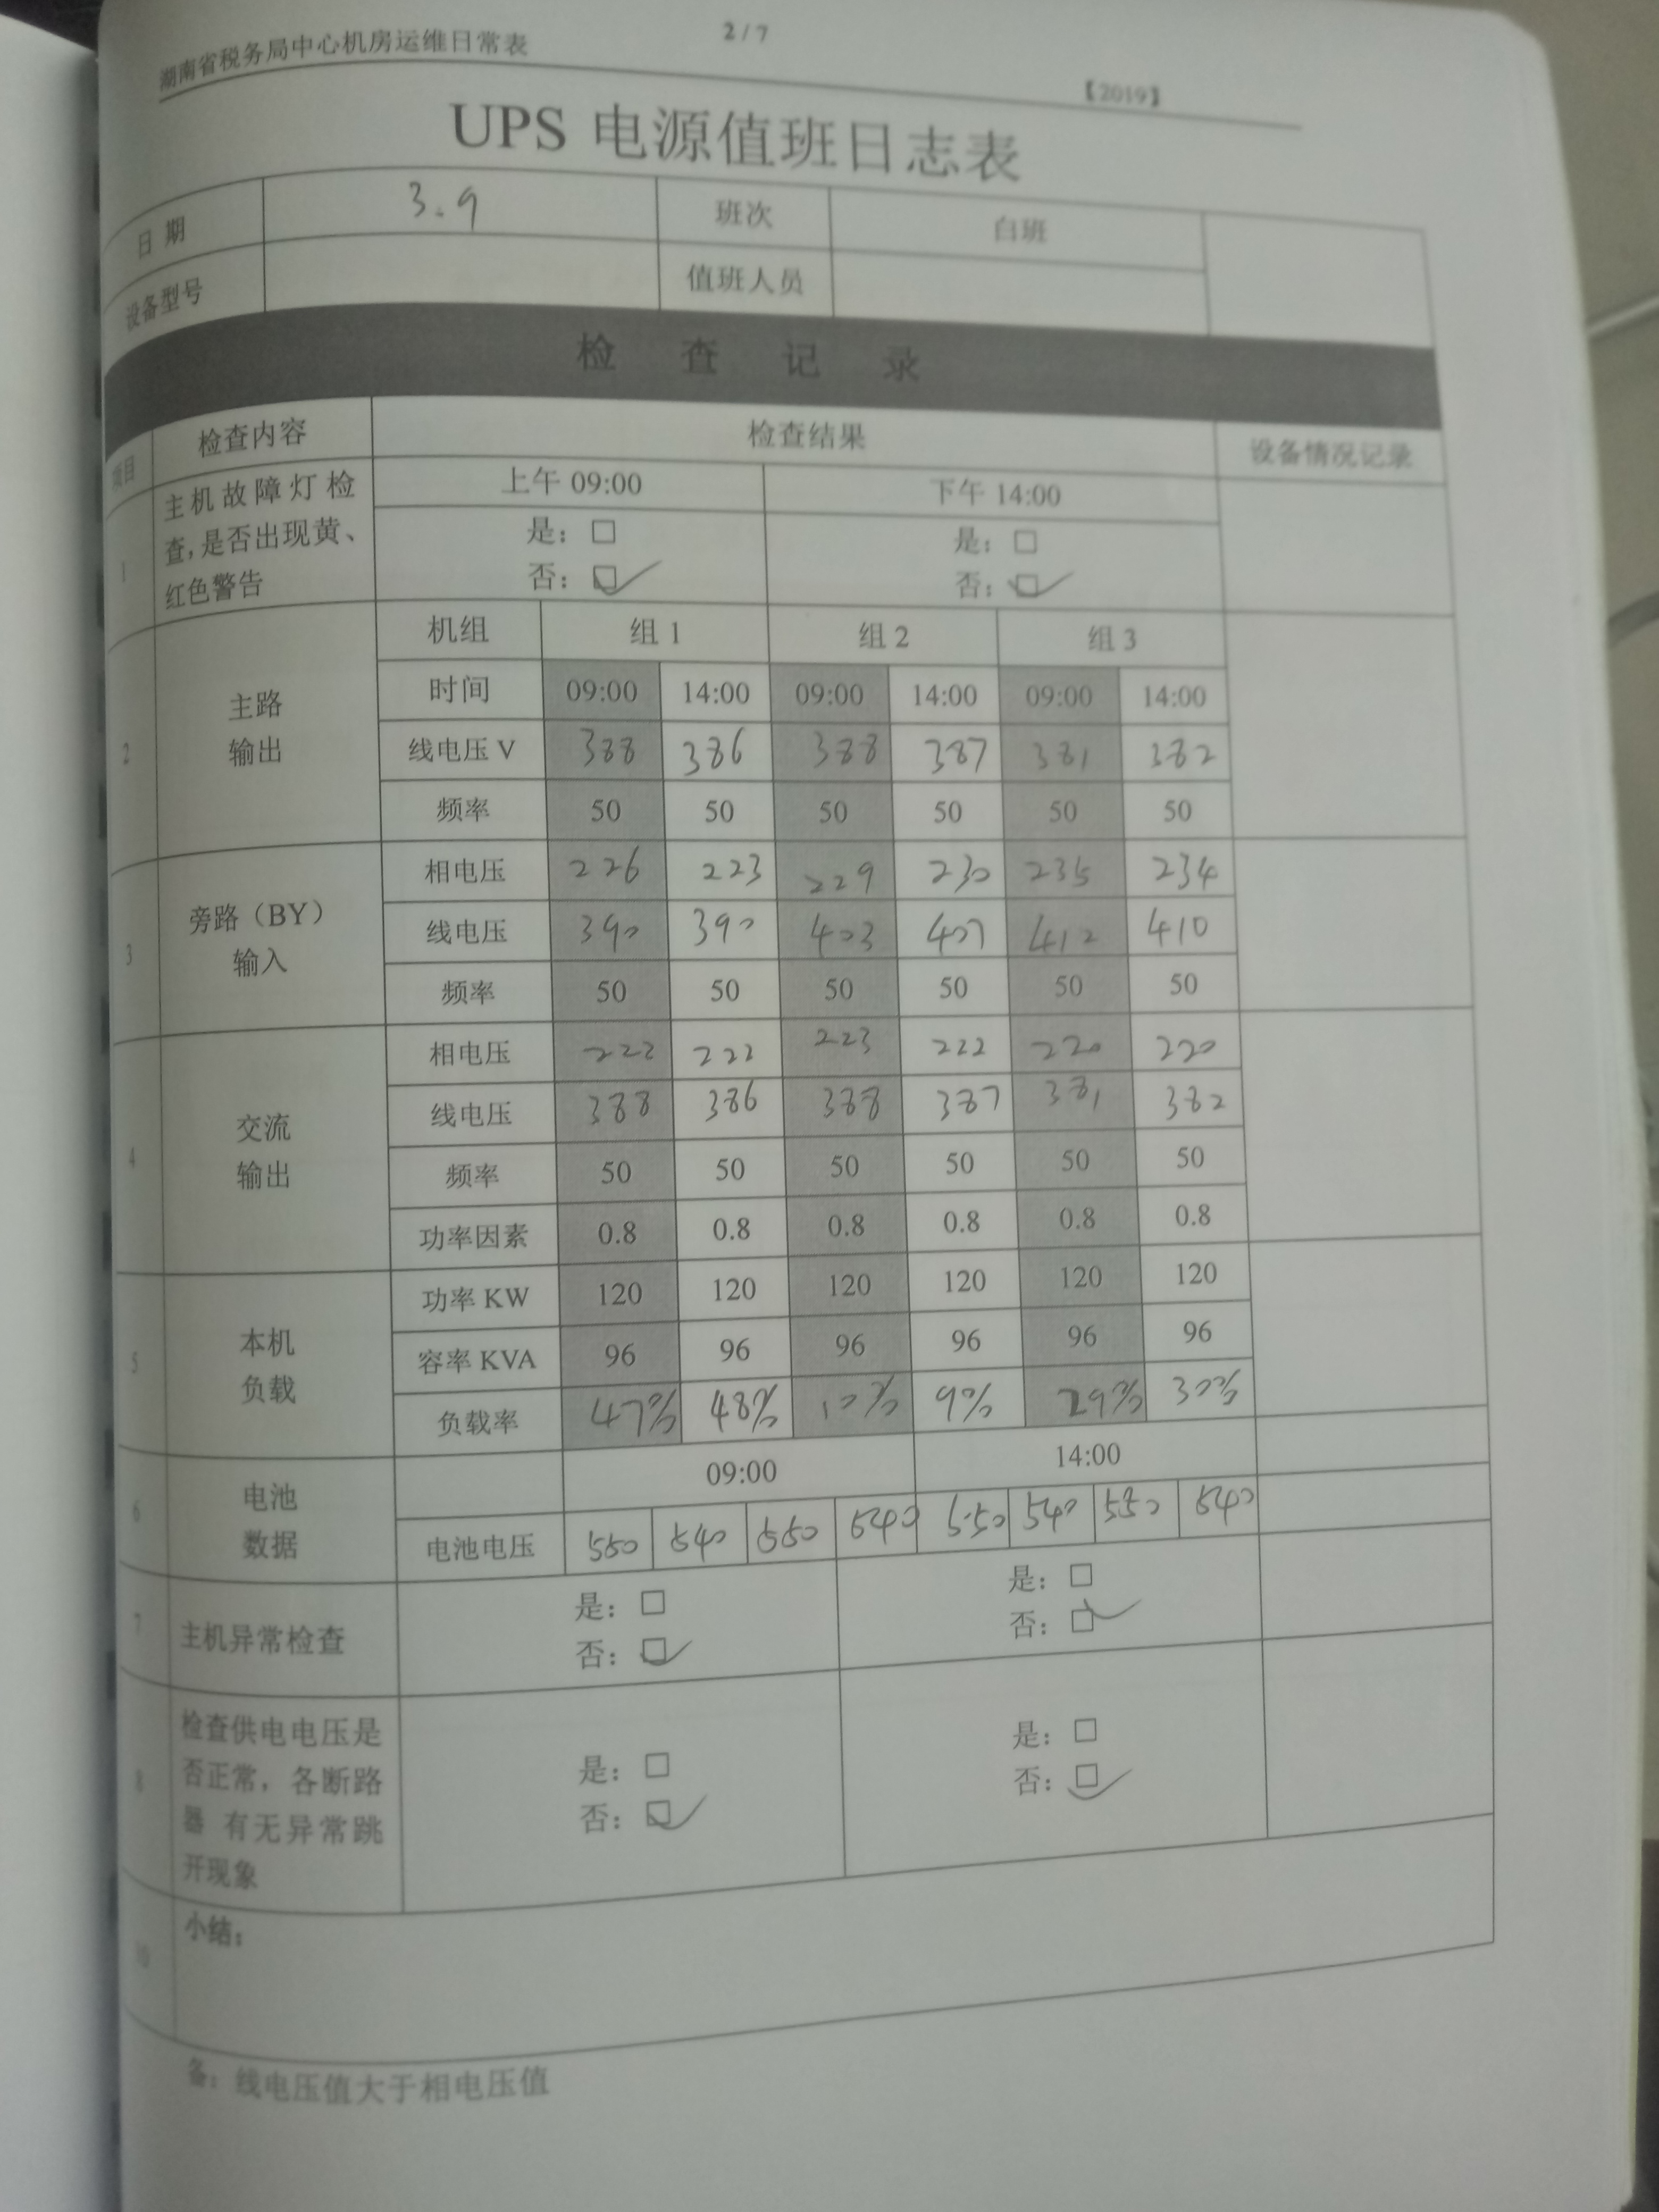 湖南省税务局中心机房运维日常表
2/7
【2019】
UPS 电源值班日志表
日 期 3.9 班次 白班
设备型号 值班人员
检 查 记 录
项目 检查内容 检查结果 设备情况记录
上午 09:00 下午 14:00
1 主机故障灯检
查,是否出现黄、
红色警告
是：□ 是：□
否：□✓ 否：□✓
2 主路
输出
机组 组 1 组 2 组 3
时间 09:00 14:00 09:00 14:00 09:00 14:00
线电压 V 388 386 388 387 381 382
频率 50 50 50 50 50 50
3 旁路（BY）
输入
相电压 226 223 229 230 235 234
线电压 390 390 403 407 412 410
频率 50 50 50 50 50 50
4 交流
输出
相电压 222 222 223 222 220 220
线电压 388 386 388 387 381 382
频率 50 50 50 50 50 50
功率因素 0.8 0.8 0.8 0.8 0.8 0.8
5 本机
负载
功率 KW 120 120 120 120 120 120
容率 KVA 96 96 96 96 96 96
负载率 47% 48% 10% 9% 29% 30%
6 电池
数据
09:00 14:00
电池电压 550 540 550 540 550 540 550 540
7 主机异常检查
是：□ 是：□
否：□✓ 否：□✓
8 检查供电电压是
否正常，各断路
器 有无异常跳
开现象
是：□ 是：□
否：□✓ 否：□✓
10 小结：
备：线电压值大于相电压值